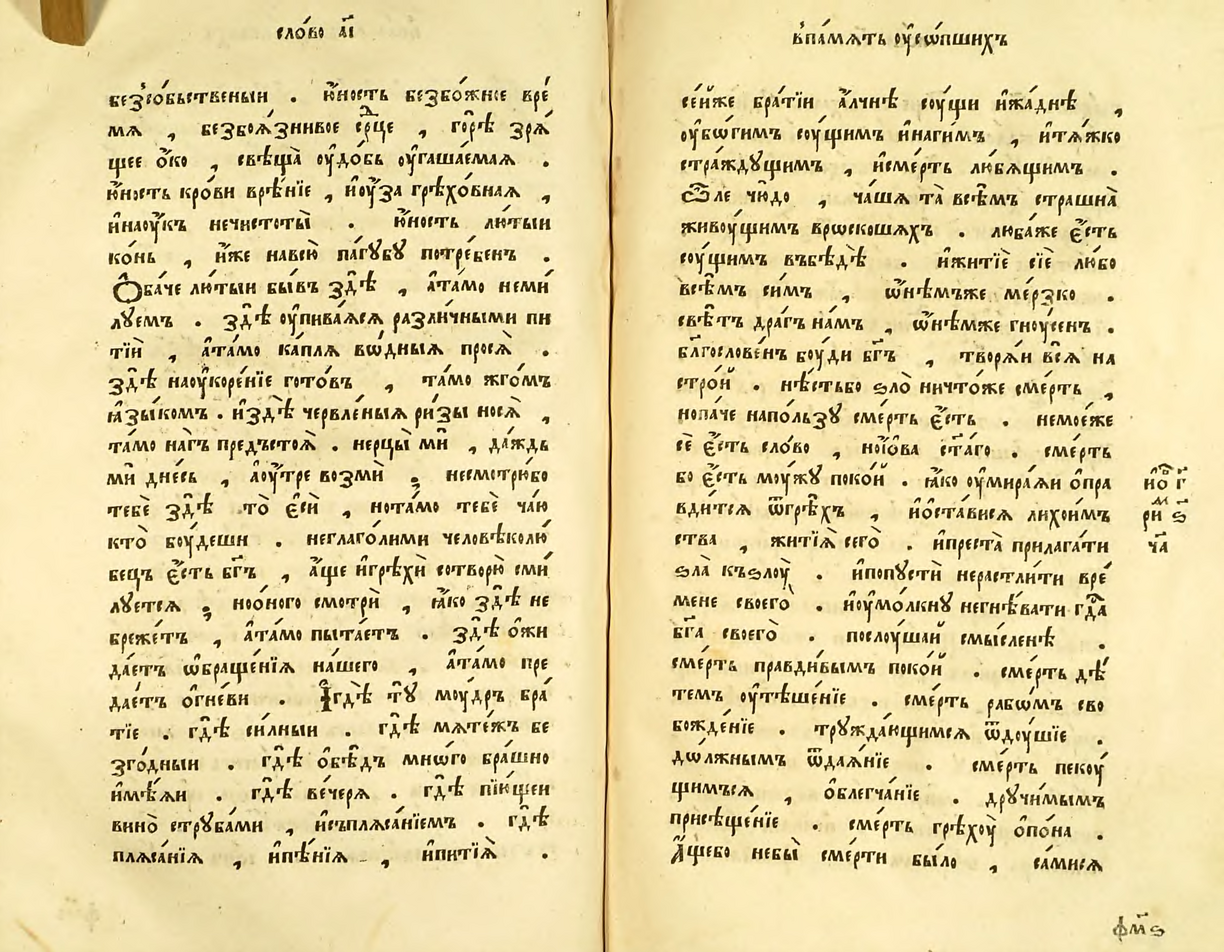 сло́во а҃і
без̾собьственыи . ю҆́ность безбо́жное вре́
мѧ , безбоѧ́знивое ср҃це , горѣ̀ зрѧ́
щее о҆́ко , свѣща̀ оу҆до́бь оу҆гаша́емаѧ .
ю҆́ность кро́ви врѣ́нїе , и҆оу҆́за грѣхо́внаѧ ,
и҆нау҆́къ нечистоты̀ . ю҆́ность лю́тыи
ко́нь , и҆́же навсю̀ па́губꙋ потре́бенъ .
Ѻ҆ба́че лю́тыи бы́въ здѣ̀ , а҆та́мо неми́
лꙋемъ . здѣ̀ оу҆пива́ѧсѧ разли́чными пи
тїи̑ , а҆та́мо ка́плѧ вѡ́дныѧ просѧ̀ .
здѣ̀ наоу҆коре́нїе гото́въ , та́мо жго́мъ
ꙗ҆зы́комъ . и҆здѣ̀ червле́ныѧ ри́зы носѧ̀ ,
та́мо на́гъ предъстоѧ̀ . нерцы̀ мѝ , да́ждь
мѝ дне́сь , а҆оу҆́тре возмѝ ; несмотрю́бо
тебѐ здѣ̀ то̀ є҆сѝ , нота́мо тебѐ ча́ю
кто̀ бꙋ́деши . неглаго́лими человѣколю́
бецъ є҆́сть бг҃ъ , а҆́ще и҆грѣхѝ сотворю̀ сми́
лꙋетсѧ ; ноо҆́ного смотрѝ , ꙗ҆́ко здѣ̀ не
бреже́тъ , а҆та́мо пыта́етъ . здѣ̀ о҆жи
да́етъ ѡ҆браще́нїѧ на́шего , а҆та́мо пре
дае́тъ о҆гне́ви . И҆гдѣ̀ тꙋ̀ моу́дръ бра́
тїе . гдѣ̀ си́лныи . гдѣ̀ мѧте́жъ бе
зго́дныи . гдѣ̀ о҆бѣ́дъ мнѡ́го бра́шно
и҆мѣ́ѧи . гдѣ̀ вече́рѧ . гдѣ̀ пїю́щеи
вино̀ стрꙋба́ми , и҆съплѧса́нїемъ . гдѣ̀
плѧса́нїѧ , и҆пѣ́нїѧ , и҆питїѧ̀ .
в̾па́мѧть оу҆со́пшихъ
се́йже бра́тїи а҆́лчнѣ соу́щи и҆жа́днѣ ,
оу҆бѡ́гимъ соу́щимъ и҆наги́мъ , и҆тѧ́жко
стра́ждꙋщимъ , и҆сме́рть лю́бѧщимъ .
Ѽле чю́до , ча́шѧ та̀ всѣ́мъ страшна̀
живоу́щимъ врѡ́скошѧхъ . люба́же є҆́сть
соу́щимъ въбѣдѣ̀ . и҆житїѐ сїѐ лю́бо
всѣ́мъ си́мъ , ѡ҆нѣ́мъже ме́рзко .
свѣ́тъ дра́гъ на́мъ , ѡ҆нѣ́мже гноу́сенъ .
бл҃гослове́нъ боу́ди бг҃ъ , творѧ́и всѧ̀ на
стро́й . нѣ́стьбо ѕло̀ ничто́же сме́рть ,
нопа́че напо́льзꙋ сме́рть є҆́сть . немое́же
сѐ є҆́сть сло́во , ноі҆́ова ст҃а́го . сме́рть
бо є҆́сть моу́жꙋ поко́й . ꙗ҆́ко оу҆мира́ѧи о҆пра
вди́тсѧ ѿгрѣ̑хъ , и҆оста́висѧ лихои́мъ
ства , житїѧ̀ сего̀ . и҆преста̀ прилага́ти
ѕла̀ къѕлоу̀ . и҆попустѝ нерастли́ти вре́
мене своего̀ . и҆оу҆мо́лкнꙋ негнѣва́ти гд҃а
бг҃а своего̀ . послоу́шай смы́сленѣ .
сме́рть правди́вымъ поко́й . сме́рть дѣ́
темъ оу҆тѣше́нїе . сме́рть рабѡ́мъ сво
божде́нїе . трꙋжда́ющимсѧ ѿдоу́шїе .
дѡ́лжнымъ ѿдаѧ́нїе . сме́рть пекоу́
щимъсѧ , о҆блегча́нїе . дрꙋчи́мымъ
присѣще́нїе . сме́рть грѣхоу̀ о҆по́на .
А҆́щебо небы̀ сме́рти бы́ло , са́мисѧ
фм҃ѕ